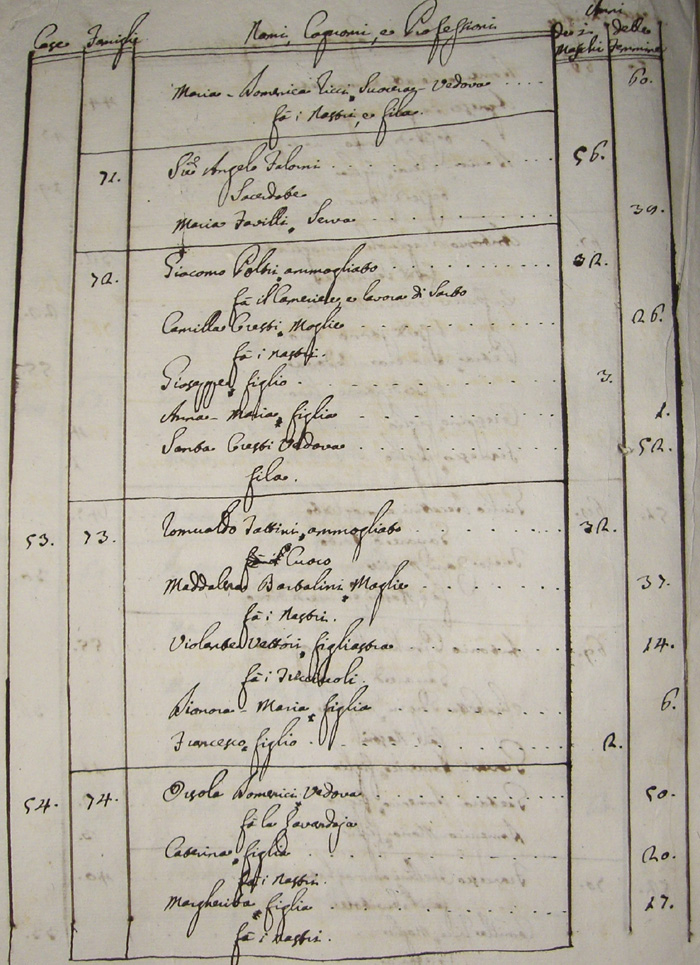 Anni
Case Famiglie Nomi, Cognomi, e Professioni Dei Maschi Delle Femmine
Maria Domenica Ricci Suocera Vedova 60.
fà i Nastri, e fila.
71. Angelo 56.
Sacerdote
Maria Favilli, Serva 39.
72. Giacomo ammogliato 32.
fà il Cameriere, e lavora di Sarto
Camilla Cresti, Moglie 26.
fà i Nastri.
Giuseppe, figlio 3.
Anna Maria, figlia 1.
Santa Cresti Vedova 52.
fila.
53. 73. Romualdo Fattini, ammogliato 32.
Cuoco
Maddalena Barbalini Moglie 37.
fà i Nastri.
Violante Vettori, figliastra 14.
fà i
Dionora Maria, figlia 6.
Francesco, figlio 2.
54. 74. Orsola Domenici, Vedova 50.
fà la Lavandaja
Caterina, figlia 20.
fà i Nastri.
Margherita, figlia 17.
fà i Nastri.